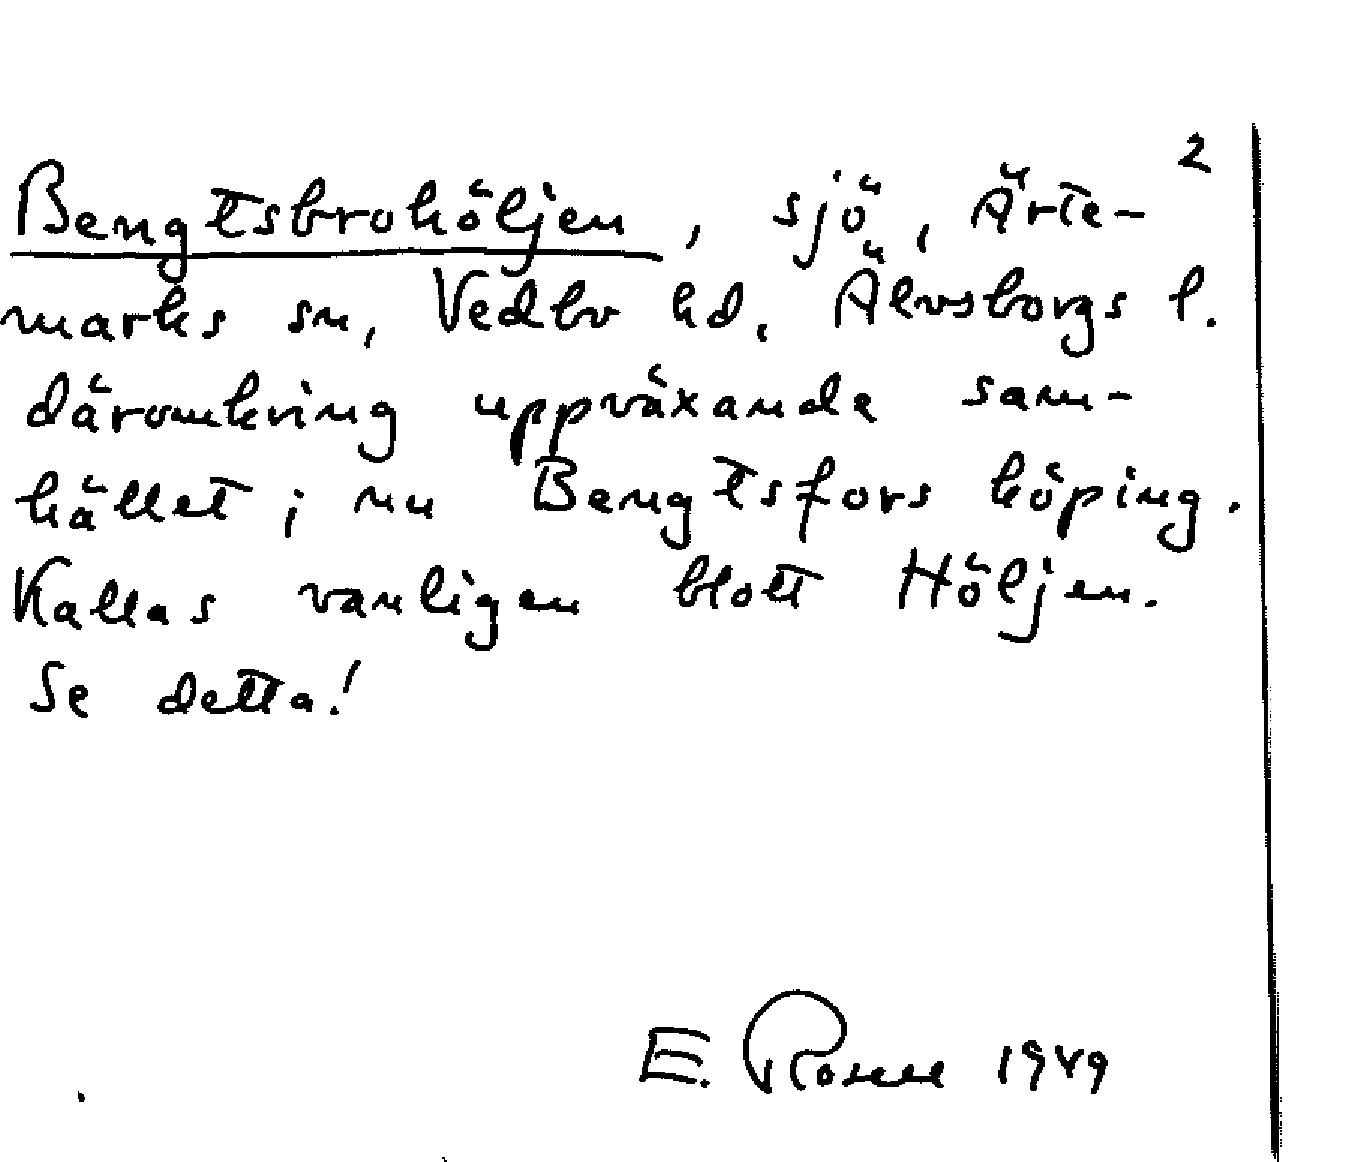 2
Bengtsbrohöljen, sjö, Ärte-
marks sn, Vedbo hd, Älvsborgs l.
däromkring uppväxande sam-
hället; nu Bengtsfors köping.
Kallas vanligen blott Höljen.
Se detta!
E. Rosell 1949